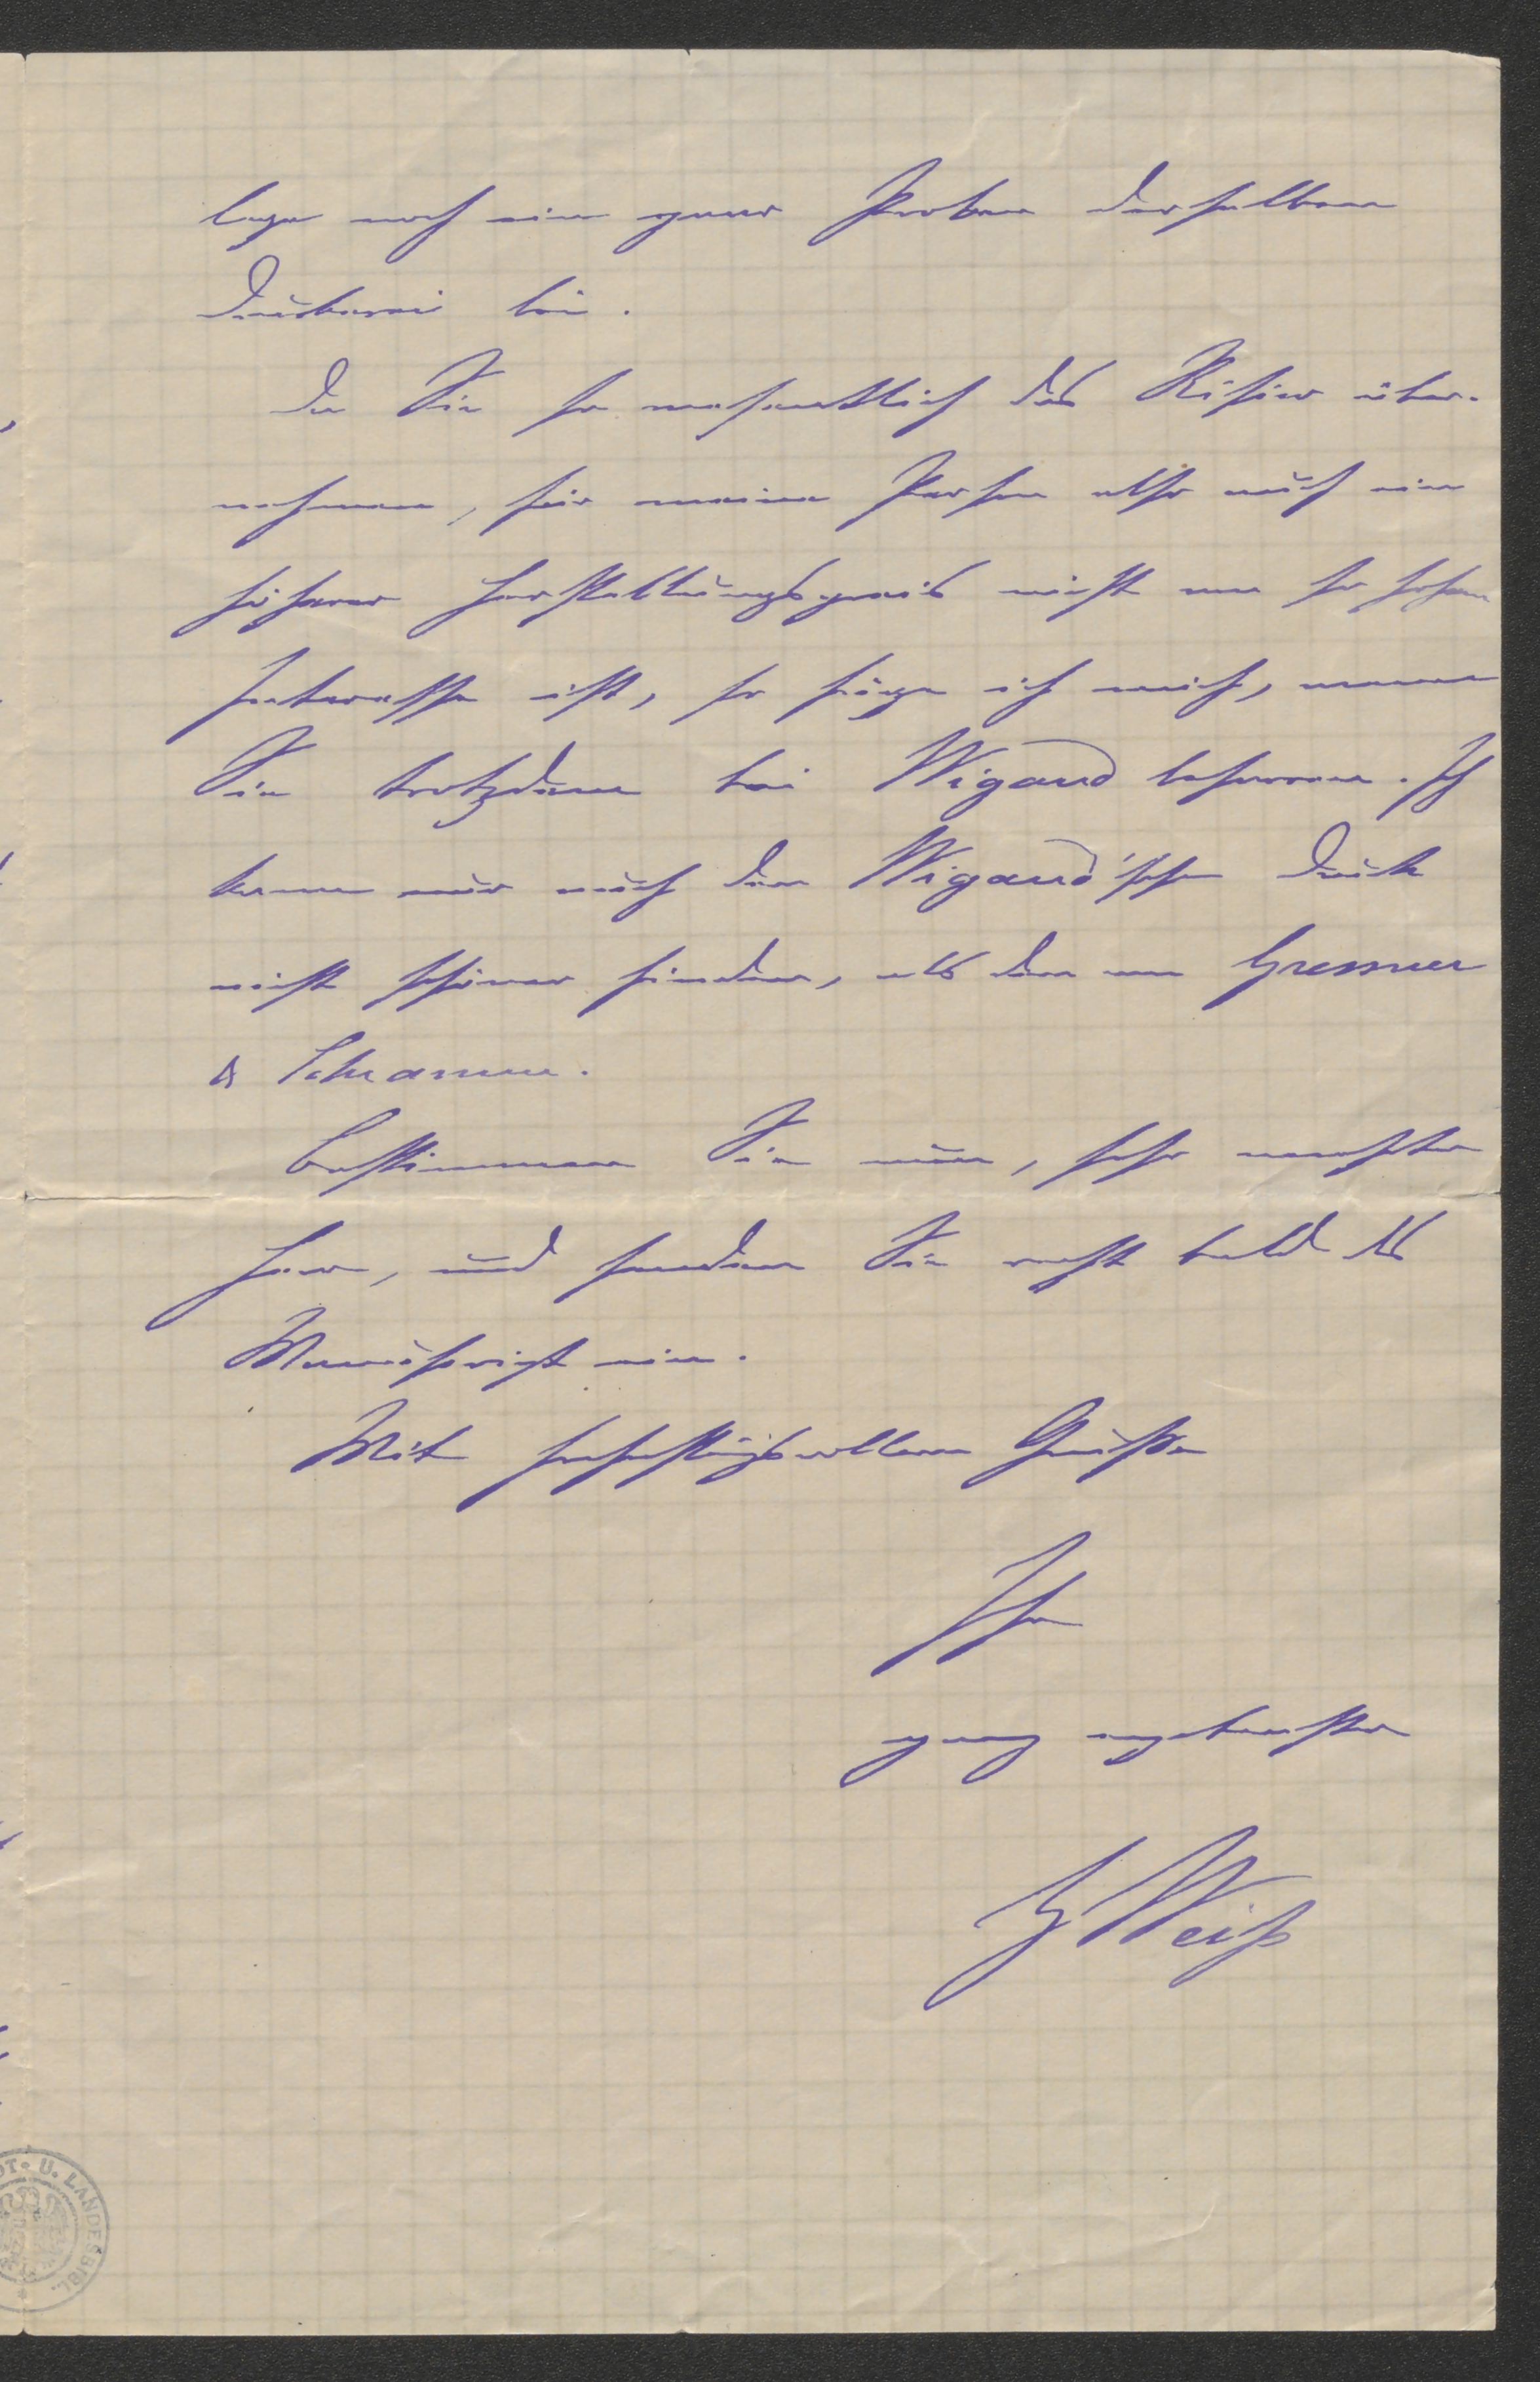 lege noch ein paar Proben derselben
Druckerei bei.
Da Sie ja wesentlich das Risico über-
nehmen, für meine Person also auch ein
höherer Herstellungspreis nicht von so hohem
Interesse ist, so füge ich mich, wenn
Sie trotzdem bei Wigand beharren. Ich
kann nur auch den Wigand'schen Druck
nicht schöner finden, als den von Gressner
& Schramm.
Bestimmen Sie nun, sehr verehrter
Herr, und senden Sie recht bald das
Manuscript ein.
Mit hochachtungsvollem Gruße
Ihr
ganz ergebenster
Weiß
U. LANDESBIBL.